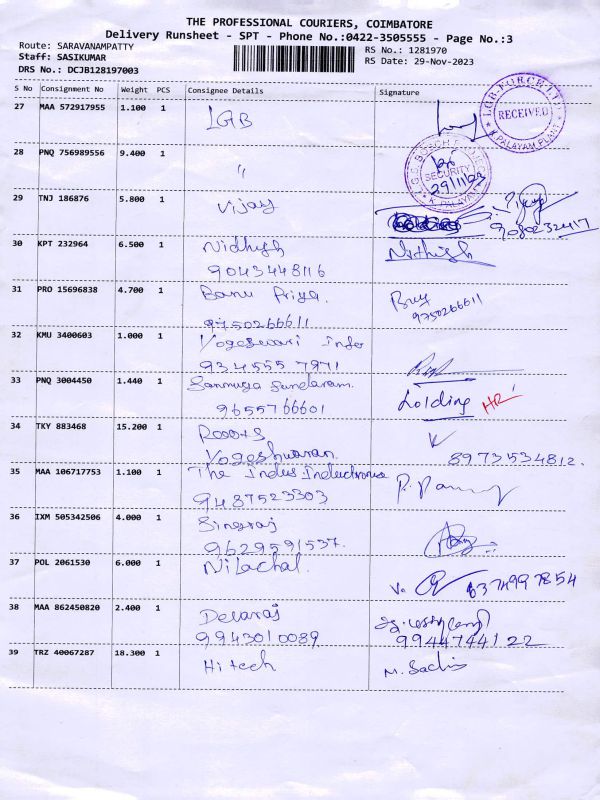 THE PROFESSIONAL COURIERS, COIMBATORE
Delivery Runsheet - SPT - Phone No.:0422-3505555 - Page No.:3
Route: SARAVANAMPATTY
RS No.: 1281970
Staff: SASIKUMAR
RS Date: 29-Nov-2023
DRS No.: DCJB128197003
S No Consignment No Weight PCS Consignee Details Signature
27 MAA 572917955 1.100 1 LGB
RECEIVED
K.PALAYAM PLANT
28 PNQ 756989556 9.400 1 "
SECURITY
29/11/23
29 TNJ 186876 5.800 1 Vijay
9080232417
30 KPT 232964 6.500 1 Nidhish Nithish
9043448116
31 PRO 15696838 4.700 1 Banu Priya.
9750266611 9750266611
32 KMU 3400603 1.000 1 Yogeswari Infos
934555 7971
33 PNQ 3004450 1.440 1 Sanmuga Sundaram. Holding HR
9655766601
34 TKY 883468 15.200 1 Rooots
Yogeshwaran. 8973534812.
35 MAA 106717753 1.100 1 The Indus Inductronics
9487523303
36 IXM 505342506 4.000 1 Singraj
9629591537.
37 POL 2061530 6.000 1 Nilachal. 6374997854
38 MAA 862450820 2.400 1 Devaraj
9943010089 9944744122
39 TRZ 40067287 18.300 1 Hitech